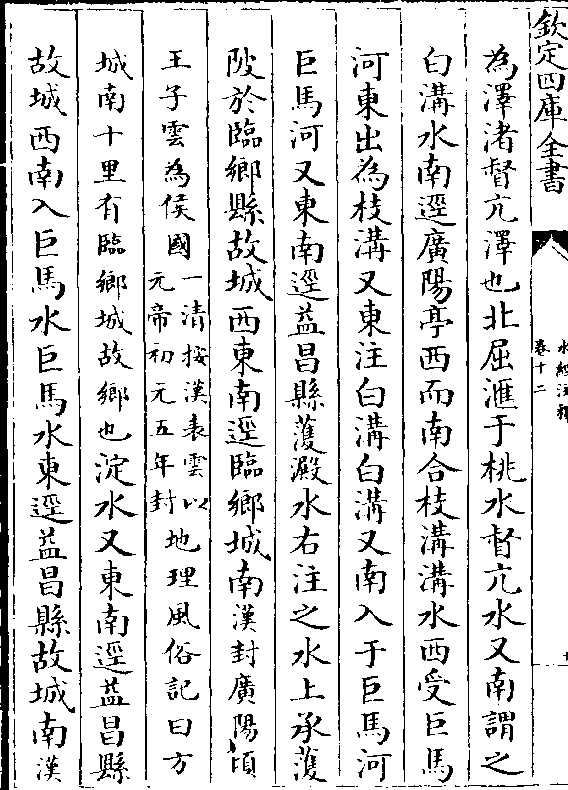 欽定四庫全書
水經注釋
卷十二
為澤渚督亢澤也北屈滙于桃水督亢水又南謂之
白溝水南逕廣陽亭西而南合枝溝溝水西受巨馬
河東出為枝溝又東注白溝白溝又南入于巨馬河
巨馬河又東南逕益昌縣濩澱水右注之水上承濩
陂於臨鄉縣故城西東南逕臨鄉城南漢封廣陽頃
王子雲為侯國一清按漢表雲以元帝初元五年封地理風俗記曰方
城南十里有臨鄉城故鄉也淀水又東南逕益昌縣
故城西南入巨馬水巨馬水東逕益昌縣故城南漢